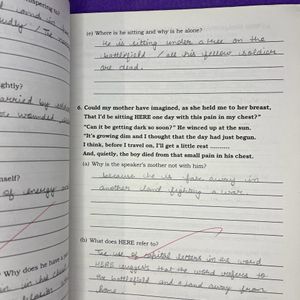 whispering to)
(e) Where is he sitting and why is he alone?
He is sitting under a tree on the
battlefield / all his fellow soldier
are dead.
ghtly?
6. Could my mother have imagined, as she held me to her breast,
That I'd be sitting HERE one day with this pain in my chest?"
"Can it be getting dark so soon?" He winced up at the sun.
"It's growing dim and I thought that the day had just begun.
I think, before I travel on, I'll get a little rest ..........
And, quietly, the boy died from that small pain in his chest.
(a) Why is the speaker's mother not with him?
because he is far away in
another land fighting a war.
nself?
of energy
(b) What does HERE refer to?
The use of capital letters in the word
HERE suggests that the word refers to
the battlefield and a land away from
home
Why does he have a